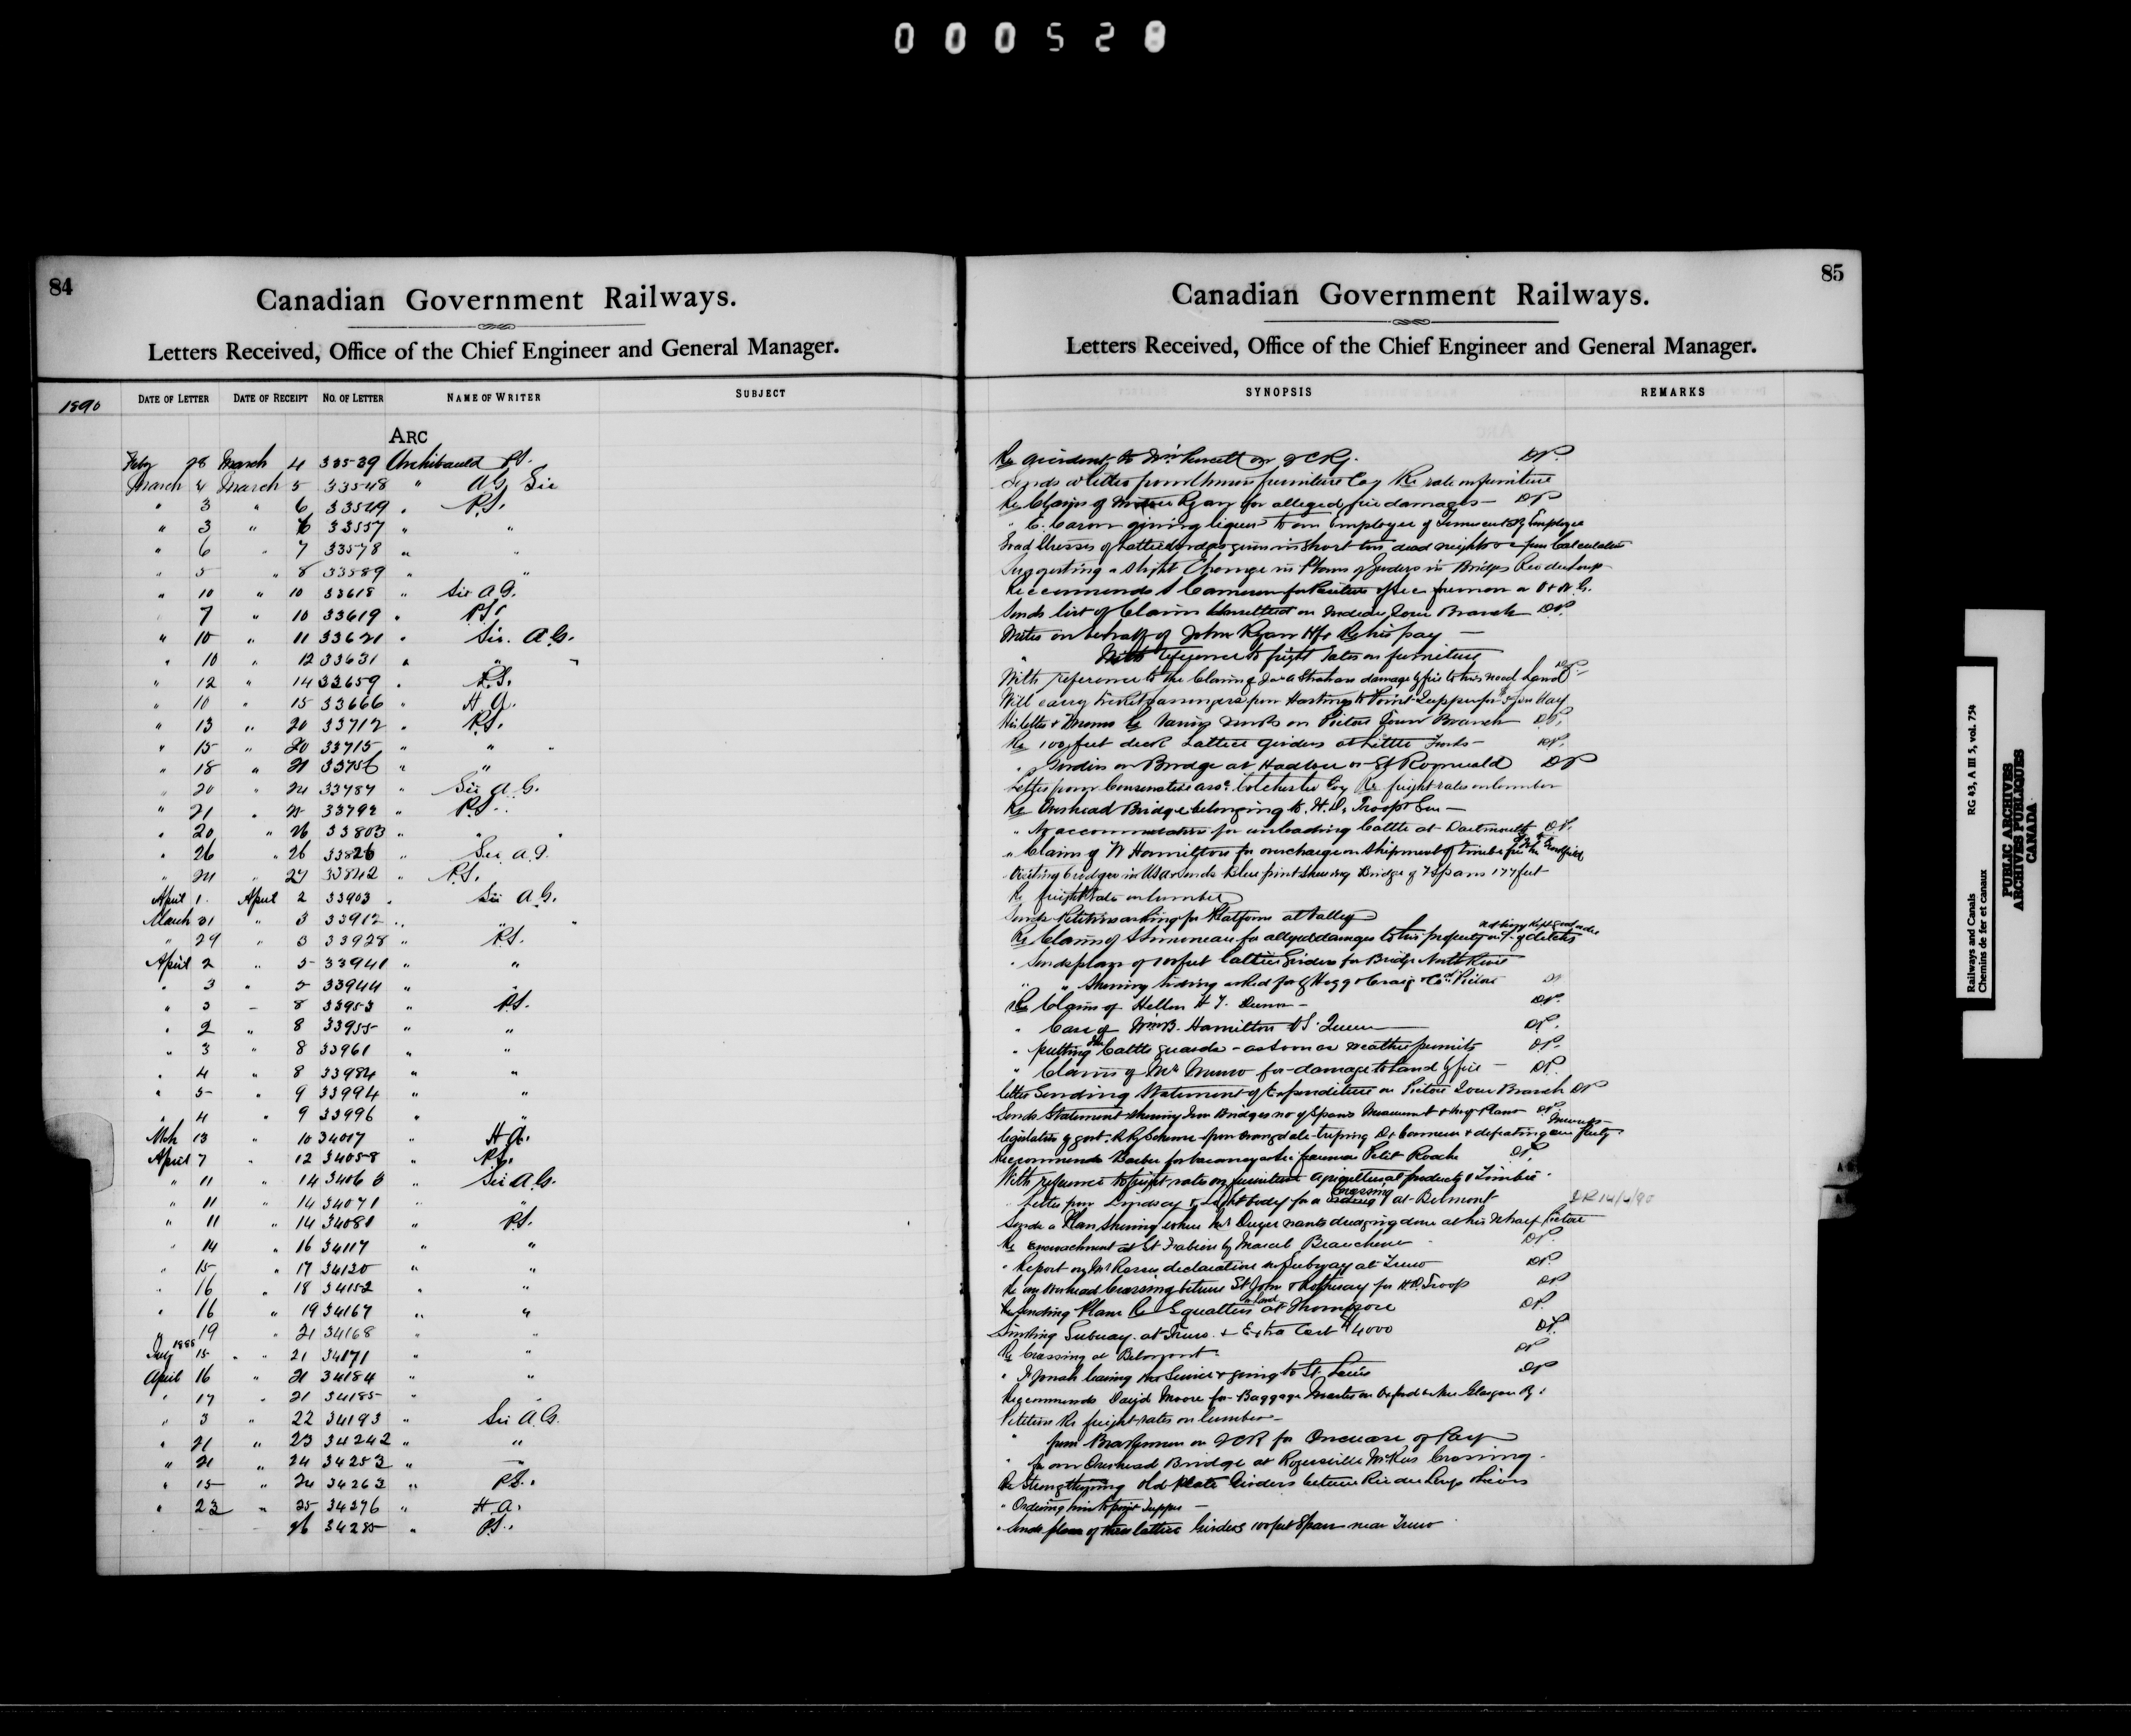 000528
84
Canadian Government Railways.
Letters Received, Office of the Chief Engineer and General Manager.
1890
DATE OF LETTER DATE OF RECEIPT NO. OF LETTER NAME OF WRITER SUBJECT
ARC
Feby 28 March 4 33539 Archibauld P.S.
March 4 March 5 33548 " A.G. Sir
" 3 " 6 33549 " P.S.
" 3 " 6 33557 " "
" 6 " 7 33578 " "
" 5 " 8 33589 " "
" 10 " 10 33618 " Sir A.G.
" 7 " 10 33619 " P.S.
" 10 " 11 33621 " Sir A.G.
" 10 " 12 33631 " "
" 12 " 14 33659 " P.S.
" 10 " 15 33666 " H A.
" 13 " 20 33712 " P.S.
" 15 " 20 33715 " "
" 18 " 21 33756 " "
" 20 " 24 33787 " Sir A.G.
" 21 " 25 33792 " P.S.
" 20 " 26 33803 " "
" 26 " 26 33826 " Sir A.G.
" 24 " 27 33842 " P.S.
April 1 April 2 33903 " Sir A.G.
March 31 " 3 33912 " "
" 29 " 3 33928 " P.S.
April 2 " 5 33941 " "
" 3 " 5 33944 " "
" 3 " 8 33953 " P.S.
" 2 " 8 33955 " "
" 3 " 8 33961 " "
" 4 " 8 33984 " "
" 5 " 9 33994 " "
" 4 " 9 33996 " "
Mch 13 " 10 34017 " H A.
April 7 " 12 34058 " P.S.
" 11 " 14 34068 " Sir A.G.
" 11 " 14 34071 "
" 11 " 14 34081 " P.S.
" 14 " 16 34117 " "
" 15 " 17 34120 " "
" 16 " 18 34152 " "
" 16 " 19 34167 " "
" 19 " 21 34168 " "
July 1888 15 " 21 34171 " "
April 16 " 21 34184 " "
" 17 " 21 34185 " "
" 3 " 22 34193 " Sir A.G.
" 21 " 23 34242 " "
" 21 " 24 34253 " "
" 15 " 24 34263 " P.S.
" 23 " 25 34276 " H A.
26 34285 " P.S.
85
Canadian Government Railways.
Letters Received, Office of the Chief Engineer and General Manager.
SYNOPSIS REMARKS
Re accident to Wm on I C Ry. DP.
Sends a letter from furniture Coy Re rate on furniture
Re Claim of Ryan for alleged fire damages DP
" C. Caron giving liquor to an Employee of Ry Employee
Suggesting a slight Change in Plans of Girders in Bridges
Recommends Cameron for
Sends list of Claims on Indian Town Branch DP.
Writes on behalf of John Ryan Re his pay
" With reference to freight rates on furniture
With reference to the Claim of Jas Strahan damage by fire to his wood Land DP.
Will carry passengers from Hastings to Point Tupper for
His letter & on Pictou Town Branch DP.
Re 100 feet deck Lattice Girders at Little Forks DP.
" Girders on Bridge at Hadlow or St Romuald DP
Letter from Conservative Asso. Colchester Coy Re freight rates on lumber
Re Overhead Bridge belonging to H. D. Troop
" accommodation for unloading Cattle at Dartmouth DP.
" Claim of W Hamilton for overcharge on shipment of timber
Visiting bridges in USA & sends blue print showing Bridge of 7 Spans 177 feet
Re freight rate on lumber
Sends Petition asking for Platform at Valley
Re Claim of Simoneau for alleged damages to his property of ditches
" Sends plan of 100 feet lattice Girders for Bridge North River
" " Showing siding asked for by Hogg & Craig & Co. Pictou DP
Re Claim of Hellen H T. Dunn DP.
" Case of Wm B. Hamilton vs. Queen DP.
" putting in Cattle guards as soon as weather permits DP.
" Claim of Mr Munro for damage to land by fire DP.
letter Sending Statement of Expenditure on Pictou Town Branch DP
Sends Statement showing Iron Bridges no of Spans DP.
Recommends Barber for vacancy Petit Roche DP.
With reference to freight rates on furniture agricultural products & Timber
" Letter from Lindsay & Lightbody for a Crossing at Belmont
Sends a Plan showing where Mr Dwyer wants dredging done at his Wharf Pictou
Re encroachment at St Fabien by Marcel Beauchene DP.
" Report on Mr declaration re Subway at Truro DP.
Re an overhead Crossing between St John & Rothesay for H.D. Troop DP
Re Sending Plans Re Squatters on land at Thompson DP.
Sinking Subway at Truro & Extra Cost $4000 DP.
Re Crossing at Belmont DP
" Jonah leaving the Service & going to St Louis DP
Recommends David Moore for Baggage Master on Oxford & New Glasgow Ry.
Petition Re freight rates on lumber
" from Brakesmen on ICR for Increase of Pay
" for an Overhead Bridge at Rogersville McKees Crossing
Re Strengthening old plate Girders between Riv du Loup
" Ordering him to point Tupper
" Sends plan of three lattice Girders 100 feet Span near Truro
Railways and Canals RG 43, A III 5, vol. 754
Chemins de fer et canaux
PUBLIC ARCHIVES
ARCHIVES PUBLIQUES
CANADA